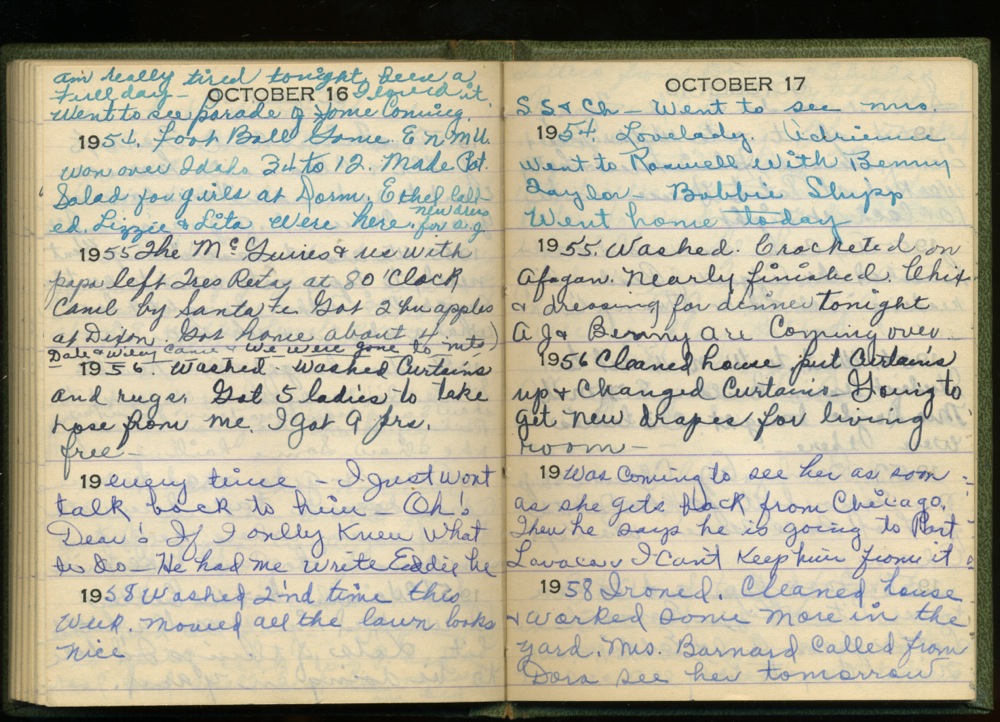 am really tired tonight, been a
full day— I loved it.
OCTOBER 16
Went to see parade of Home Coming.
1954. Foot Ball Game. E.N.M.U.
won over Idaho 34 to 12. Made Pot.
Salad for girls at Dorm. Ethel call-
ed. Lizzie & Lita were here. new dress for a.j.
1955 The McGuires & us with
papa left Tres Retas at 8 O'Clock
Came by Santa Fe. Got 2 bu apples
at Dixon. Got home about 4
Dale & Wiley Came & we were gone to mts)
1956. Washed. Washed Curtains
and rugs. Got 5 ladies to take
hose from me, I got 9 prs.
free—
19 every time — I Just wont
talk back to him — Oh!
Dear! If I only Knew What
to do — He had me write Eddie he
1958 Washed 2nd time this
Week. mowed all the lawn looks
nice
OCTOBER 17
S.S. & Ch— Went to see mrs.
1954. Lovelady. Adrienne
Went to Roswell With Benny
Taylor — Bobbie Shipp
Went home today
1955. Washed. Crocheted on
Afagan. Nearly finished. Chix
& dressing for dinner tonight
A J & Benny are Coming over
1956 Cleaned house put Curtains
up & Changed Curtains — Going to
get new drapes for living
room —
19 Was coming to see her as soon
as she gets back from Chicago.
Then he says he is going to Port
Lavaca. I Can't Keep him from it
1958 Ironed. Cleaned house
& worked some more in the
yard. Mrs. Barnard called from
Dora see her tomorrow